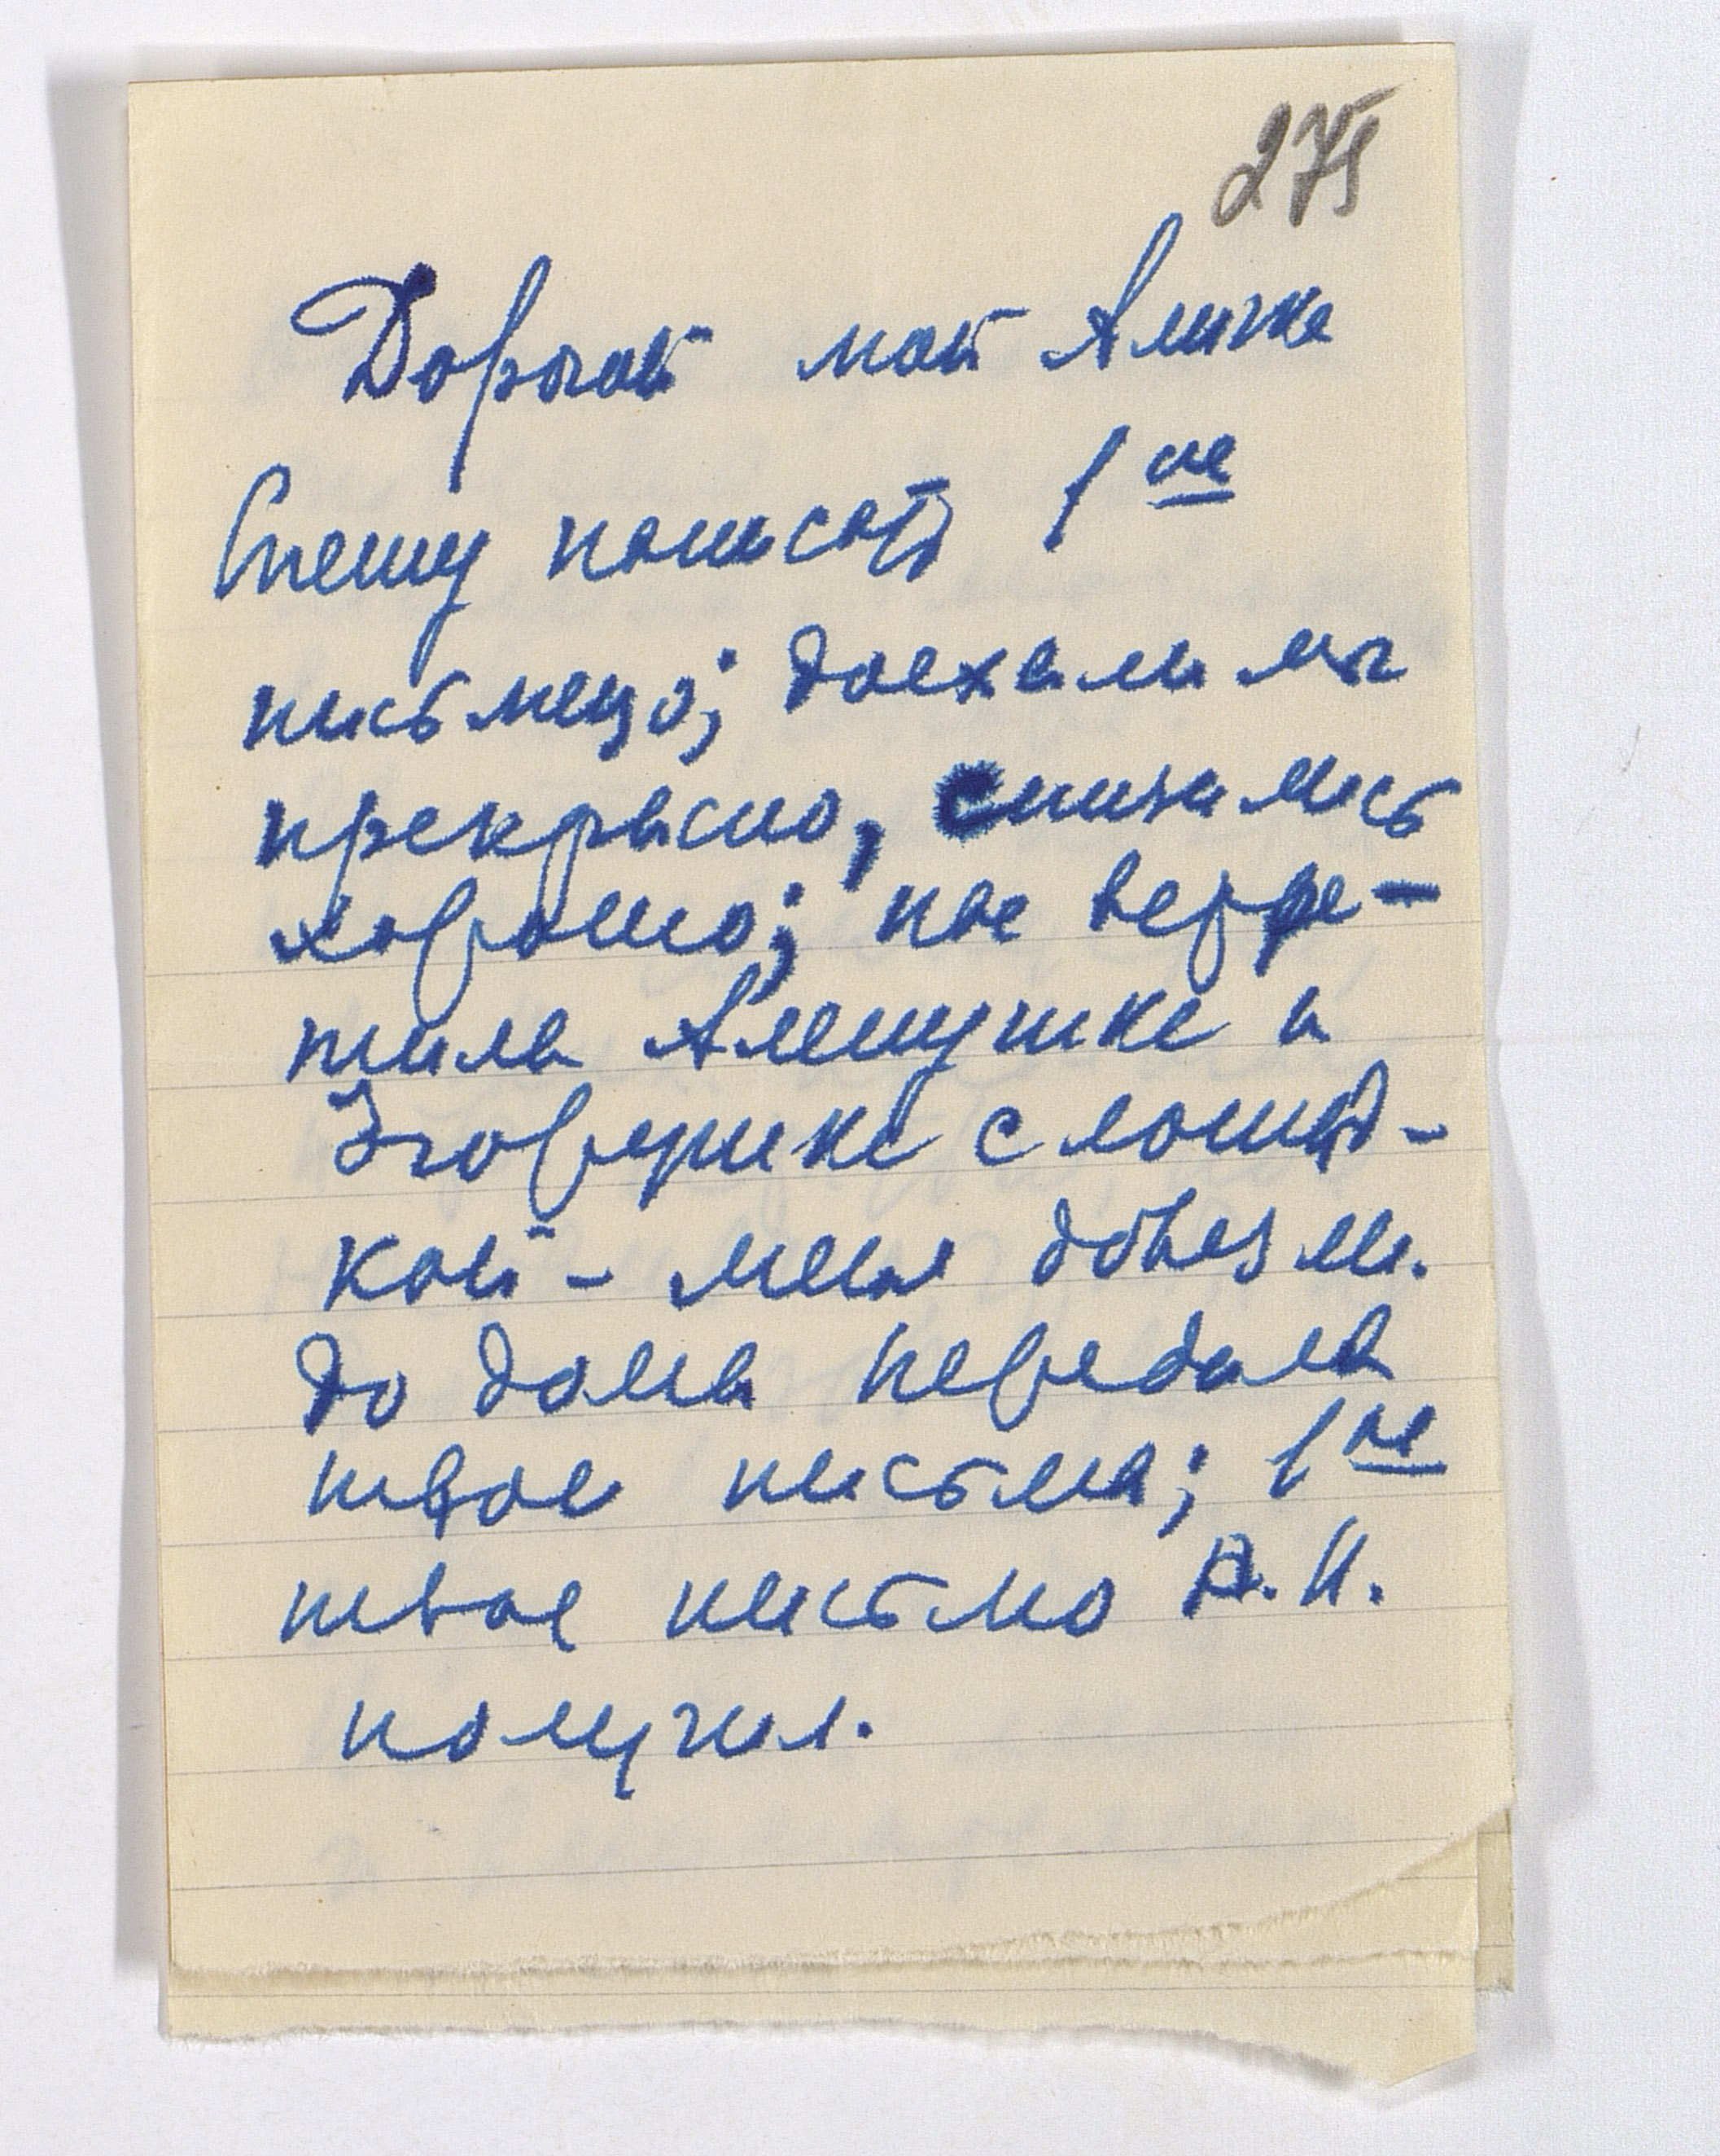 275
Дорогой мой Алиже
Спешу написать 1ое
письмецо; доехали мы
прекрасно, снизились
хорошо; нас встре-
тила Аннушка и
Егорушка с лошад-
кой - меня довезли.
До дома передала
твое письма; 1ое
твое письмо А.И.
получил.